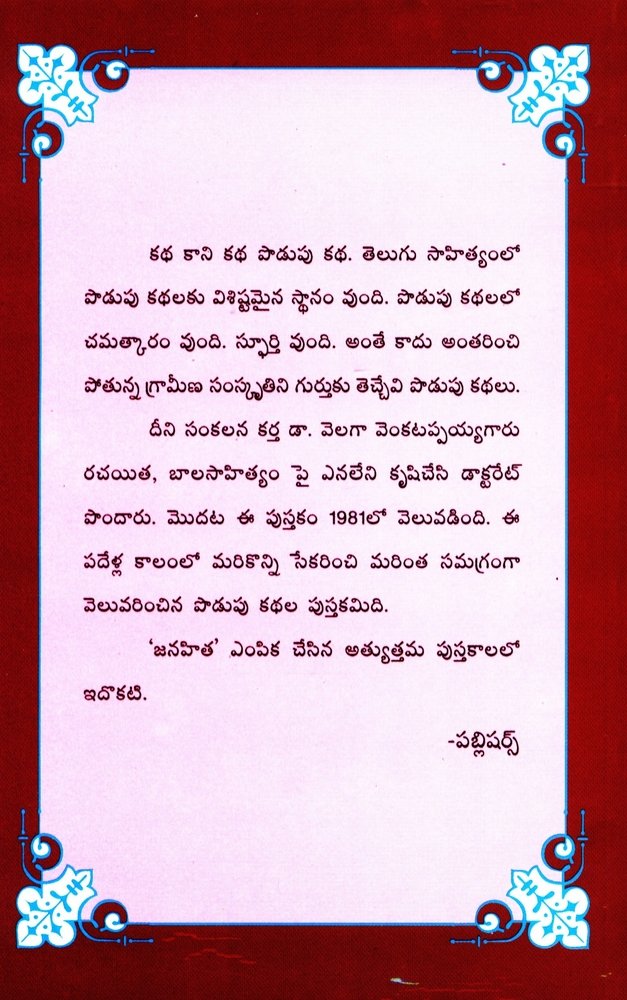 కథ కాని కథ పొడుపు కథ. తెలుగు సాహిత్యంలో
పొడుపు కథలకు విశిష్టమైన స్థానం వుంది. పొడుపు కథలలో
చమత్కారం వుంది. స్ఫూర్తి వుంది. అంతే కాదు అంతరించి
పోతున్న గ్రామీణ సంస్కృతిని గుర్తుకు తెచ్చేవి పొడుపు కథలు.
దీని సంకలన కర్త డా. వెలగా వెంకటప్పయ్యగారు
రచయిత, బాలసాహిత్యం పై ఎనలేని కృషిచేసి డాక్టరేట్
పొందారు. మొదట ఈ పుస్తకం 1981లో వెలువడింది. ఈ
పదేళ్ల కాలంలో మరికొన్ని సేకరించి మరింత సమగ్రంగా
వెలువరించిన పొడుపు కథల పుస్తకమిది.
‘జనహిత’ ఎంపిక చేసిన అత్యుత్తమ పుస్తకాలలో
ఇదొకటి.
-పబ్లిషర్స్